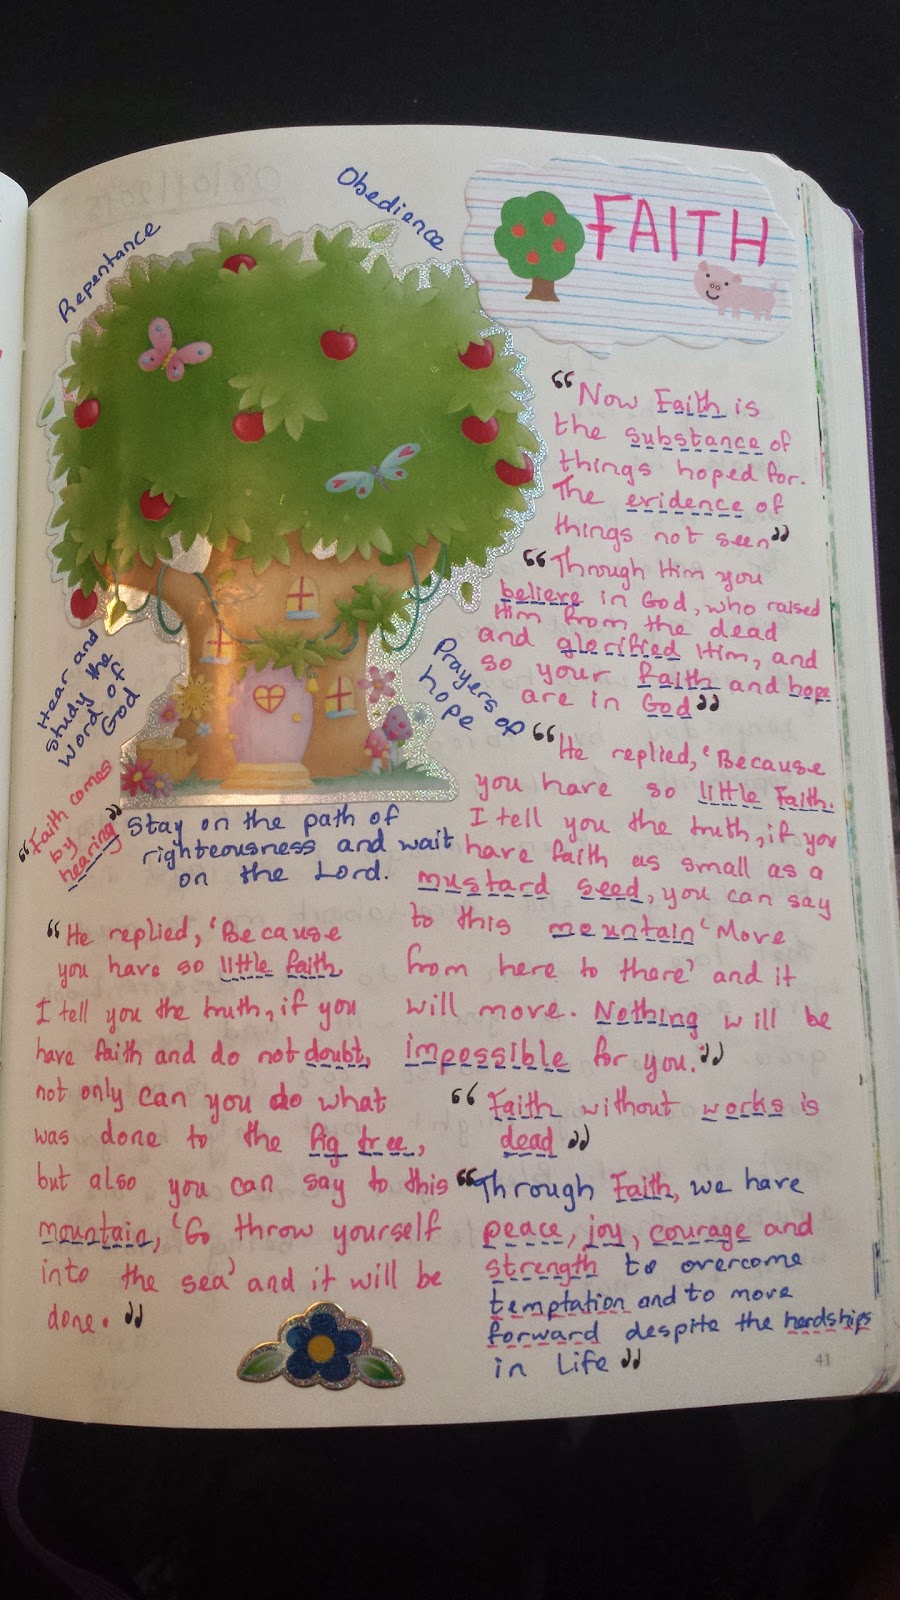 FAITH
Obedience
Repentance
"Now Faith is
the substance of
things hoped for.
The evidence of
things not seen"
"Through Him you
believe in God, who raised
Him from the dead
and glorified Him, and
so your faith and hope
are in God"
Prayers of
hope
Hear and
study the
word of
God
"Faith comes
by
hearing"
Stay on the path of
righteousness and wait
on the Lord.
"He replied, 'Because
you have so little faith.
I tell you the truth, if you
have faith as small as a
mustard seed, you can say
to this mountain 'Move
from here to there' and it
will move. Nothing will be
impossible for you."
"He replied, 'Because
you have so little faith
I tell you the truth, if you
have faith and do not doubt,
not only can you do what
was done to the fig tree,
but also you can say to this
mountain, 'Go throw yourself
into the sea' and it will be
done."
"Faith without works is
dead"
"Through Faith, we have
peace, joy, courage and
strength to overcome
temptation and to move
forward despite the hardships
in life"
41